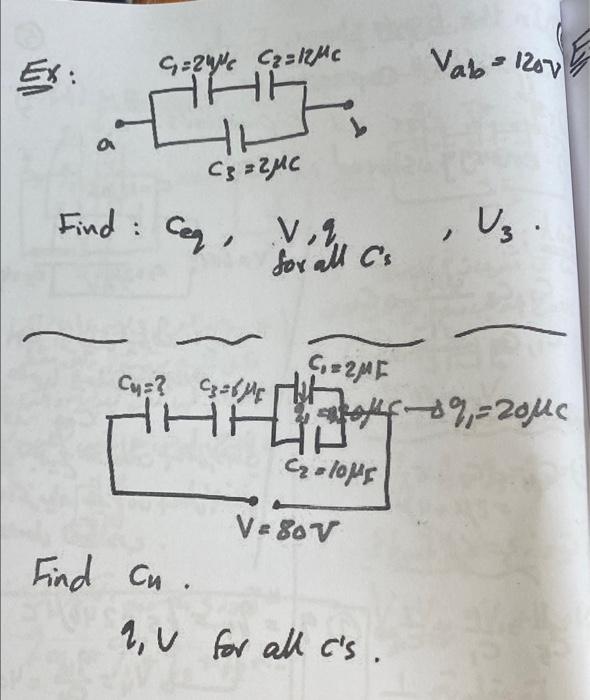 Ex:
C₁=24μC C₂=12μC
Vab = 120V
a
b
C₃=2μC
Find : Ceq , V,q , U₃ .
for all C's
C₁=2μF
C₄=? C₃=6μF
→ q₁=20μC
C₂=10μF
V=80V
Find C₄ .
q, V for all C's .